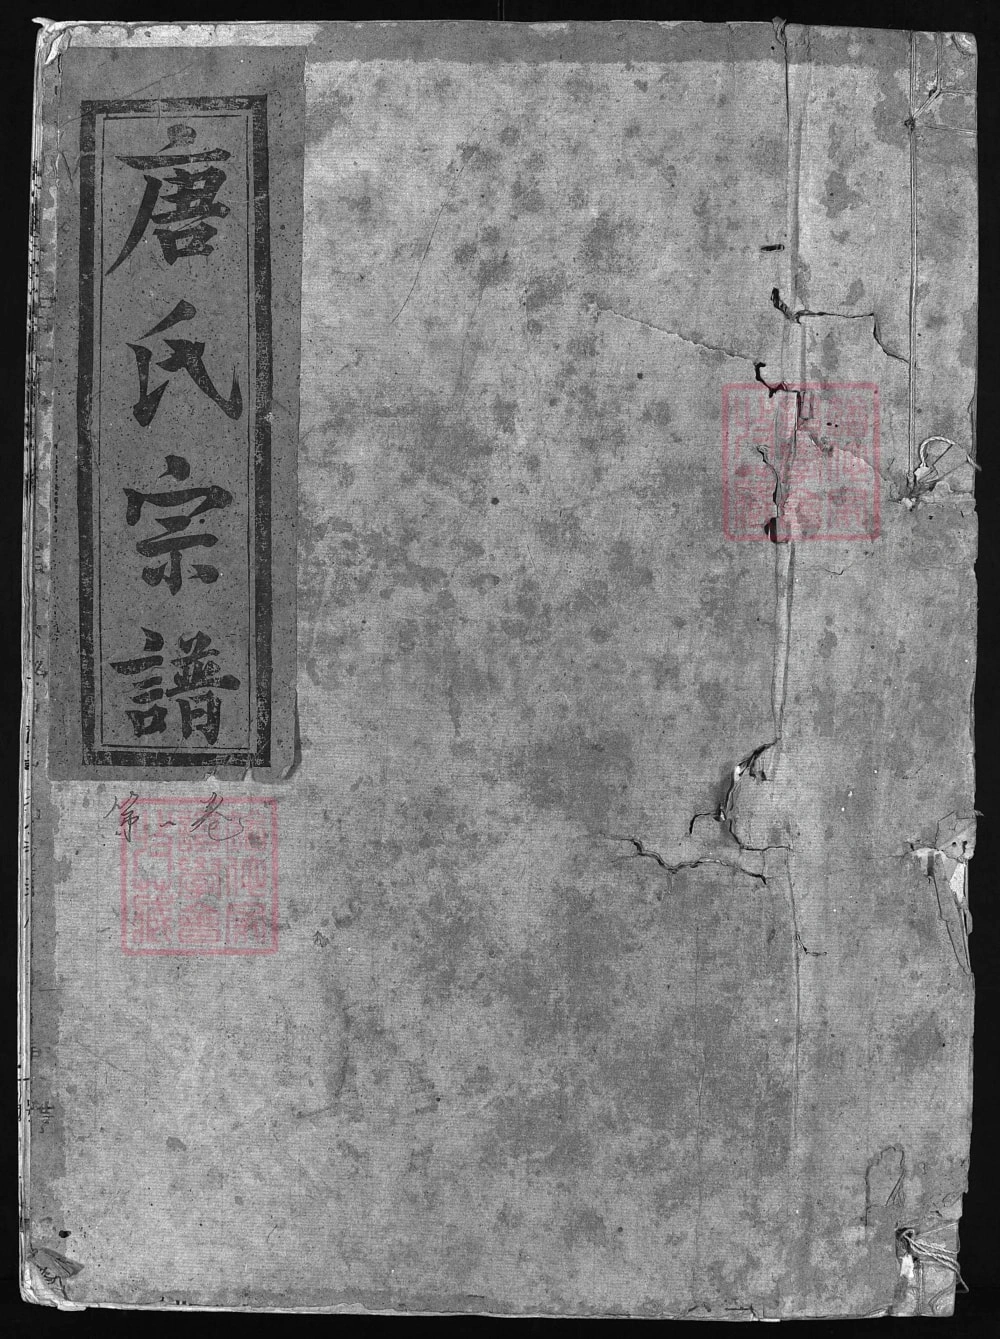 唐氏宗譜
第一卷